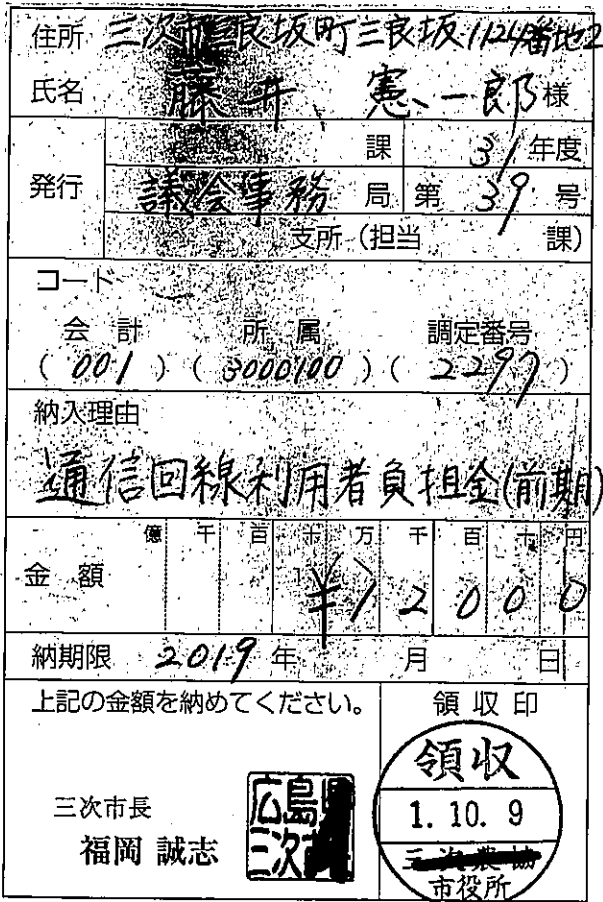 住所 三次市三良坂町三良坂1124番地2
氏名 藤井 憲一郎様
発行 課 31年度
議会事務局 第39号
支所(担当 課)
コード
会計 所属 調定番号
(001)(3000100)(2297)
納入理由
通信回線利用者負担金(前期)
億千百十万千百十円
金額 ¥12000
納期限 2019年 月 日
上記の金額を納めてください。
領収印
三次市長
福岡 誠志
広島県
三次市
領収
1.10.9
三次農協
市役所